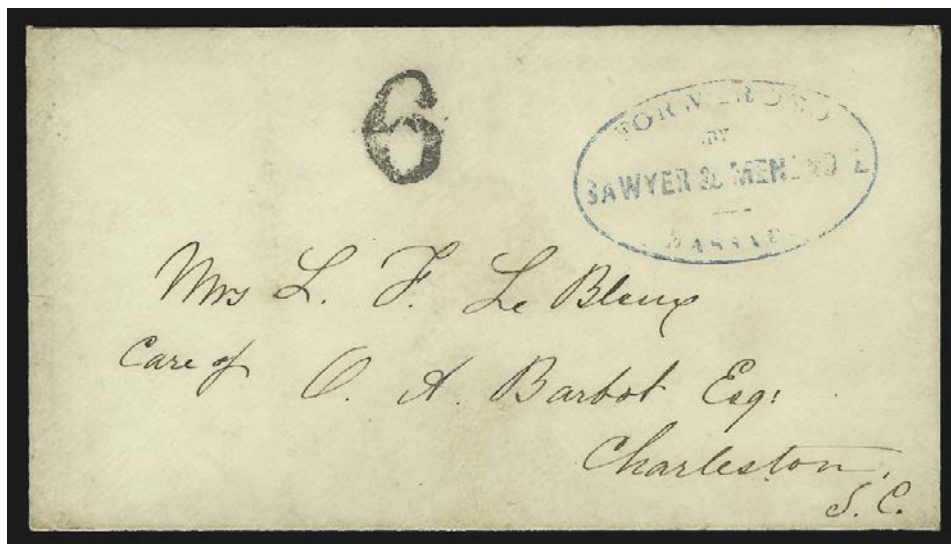 6
FORWARDED
BY
SAWYER & MENENDEZ
NASSAU
Mrs L. F. Le Blanc
Care of O. A. Barbot Esq:
Charleston,
S. C.